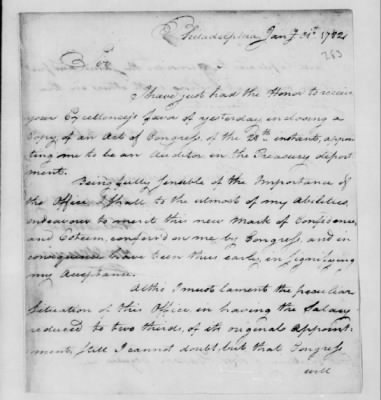 Philadelphia Jany. 31st. 1782
283
Sr.
I have just had the Honor to receive
your Excellency's favor of yesterday inclosing a
Copy of an Act of Congress, of the 28th instant, appoin
ting me to be an Auditor in the Treasury depart
ment.
Being fully sensible of the Importance of
the Office I shall to the utmost of my Abilities,
endeavour to merit this new Mark of Confidence,
and Esteem, confer'd on me by Congress, and in
consequence have been thus early, in signifying
my Acceptance.
Altho I must lament the peculiar
Situation of this Office, in having the Salary
reduced to two thirds, of its original Appoint
ment, still I cannot doubt, but that Congress
will